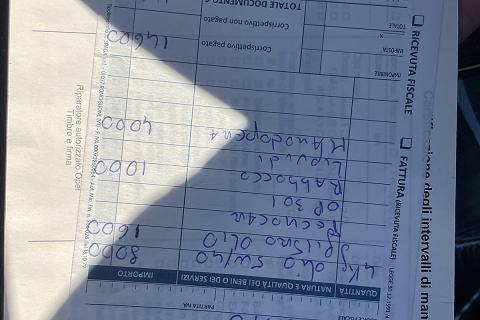 degli intervalli di man
RICEVUTA FISCALE
FATTURA (RICEVUTA FISCALE)
LEGGE 30.12.1991 N.
PARTITA IVA
QUANTITÀ NATURA E QUALITÀ DEI BENI O DEI SERVIZI IMPORTO
olio 5W/40 8000
OLIO 1600
OP 301
Rabbocco
Liquidi 1000
Manodopera 4000
IMPONIBILE
IMPOSTA
%
TOTALE
Corrispettivo pagato 14600
Corrispettivo non pagato
TOTALE DOCUMENTO
Riparatore autorizzato Opel
Timbro e firma